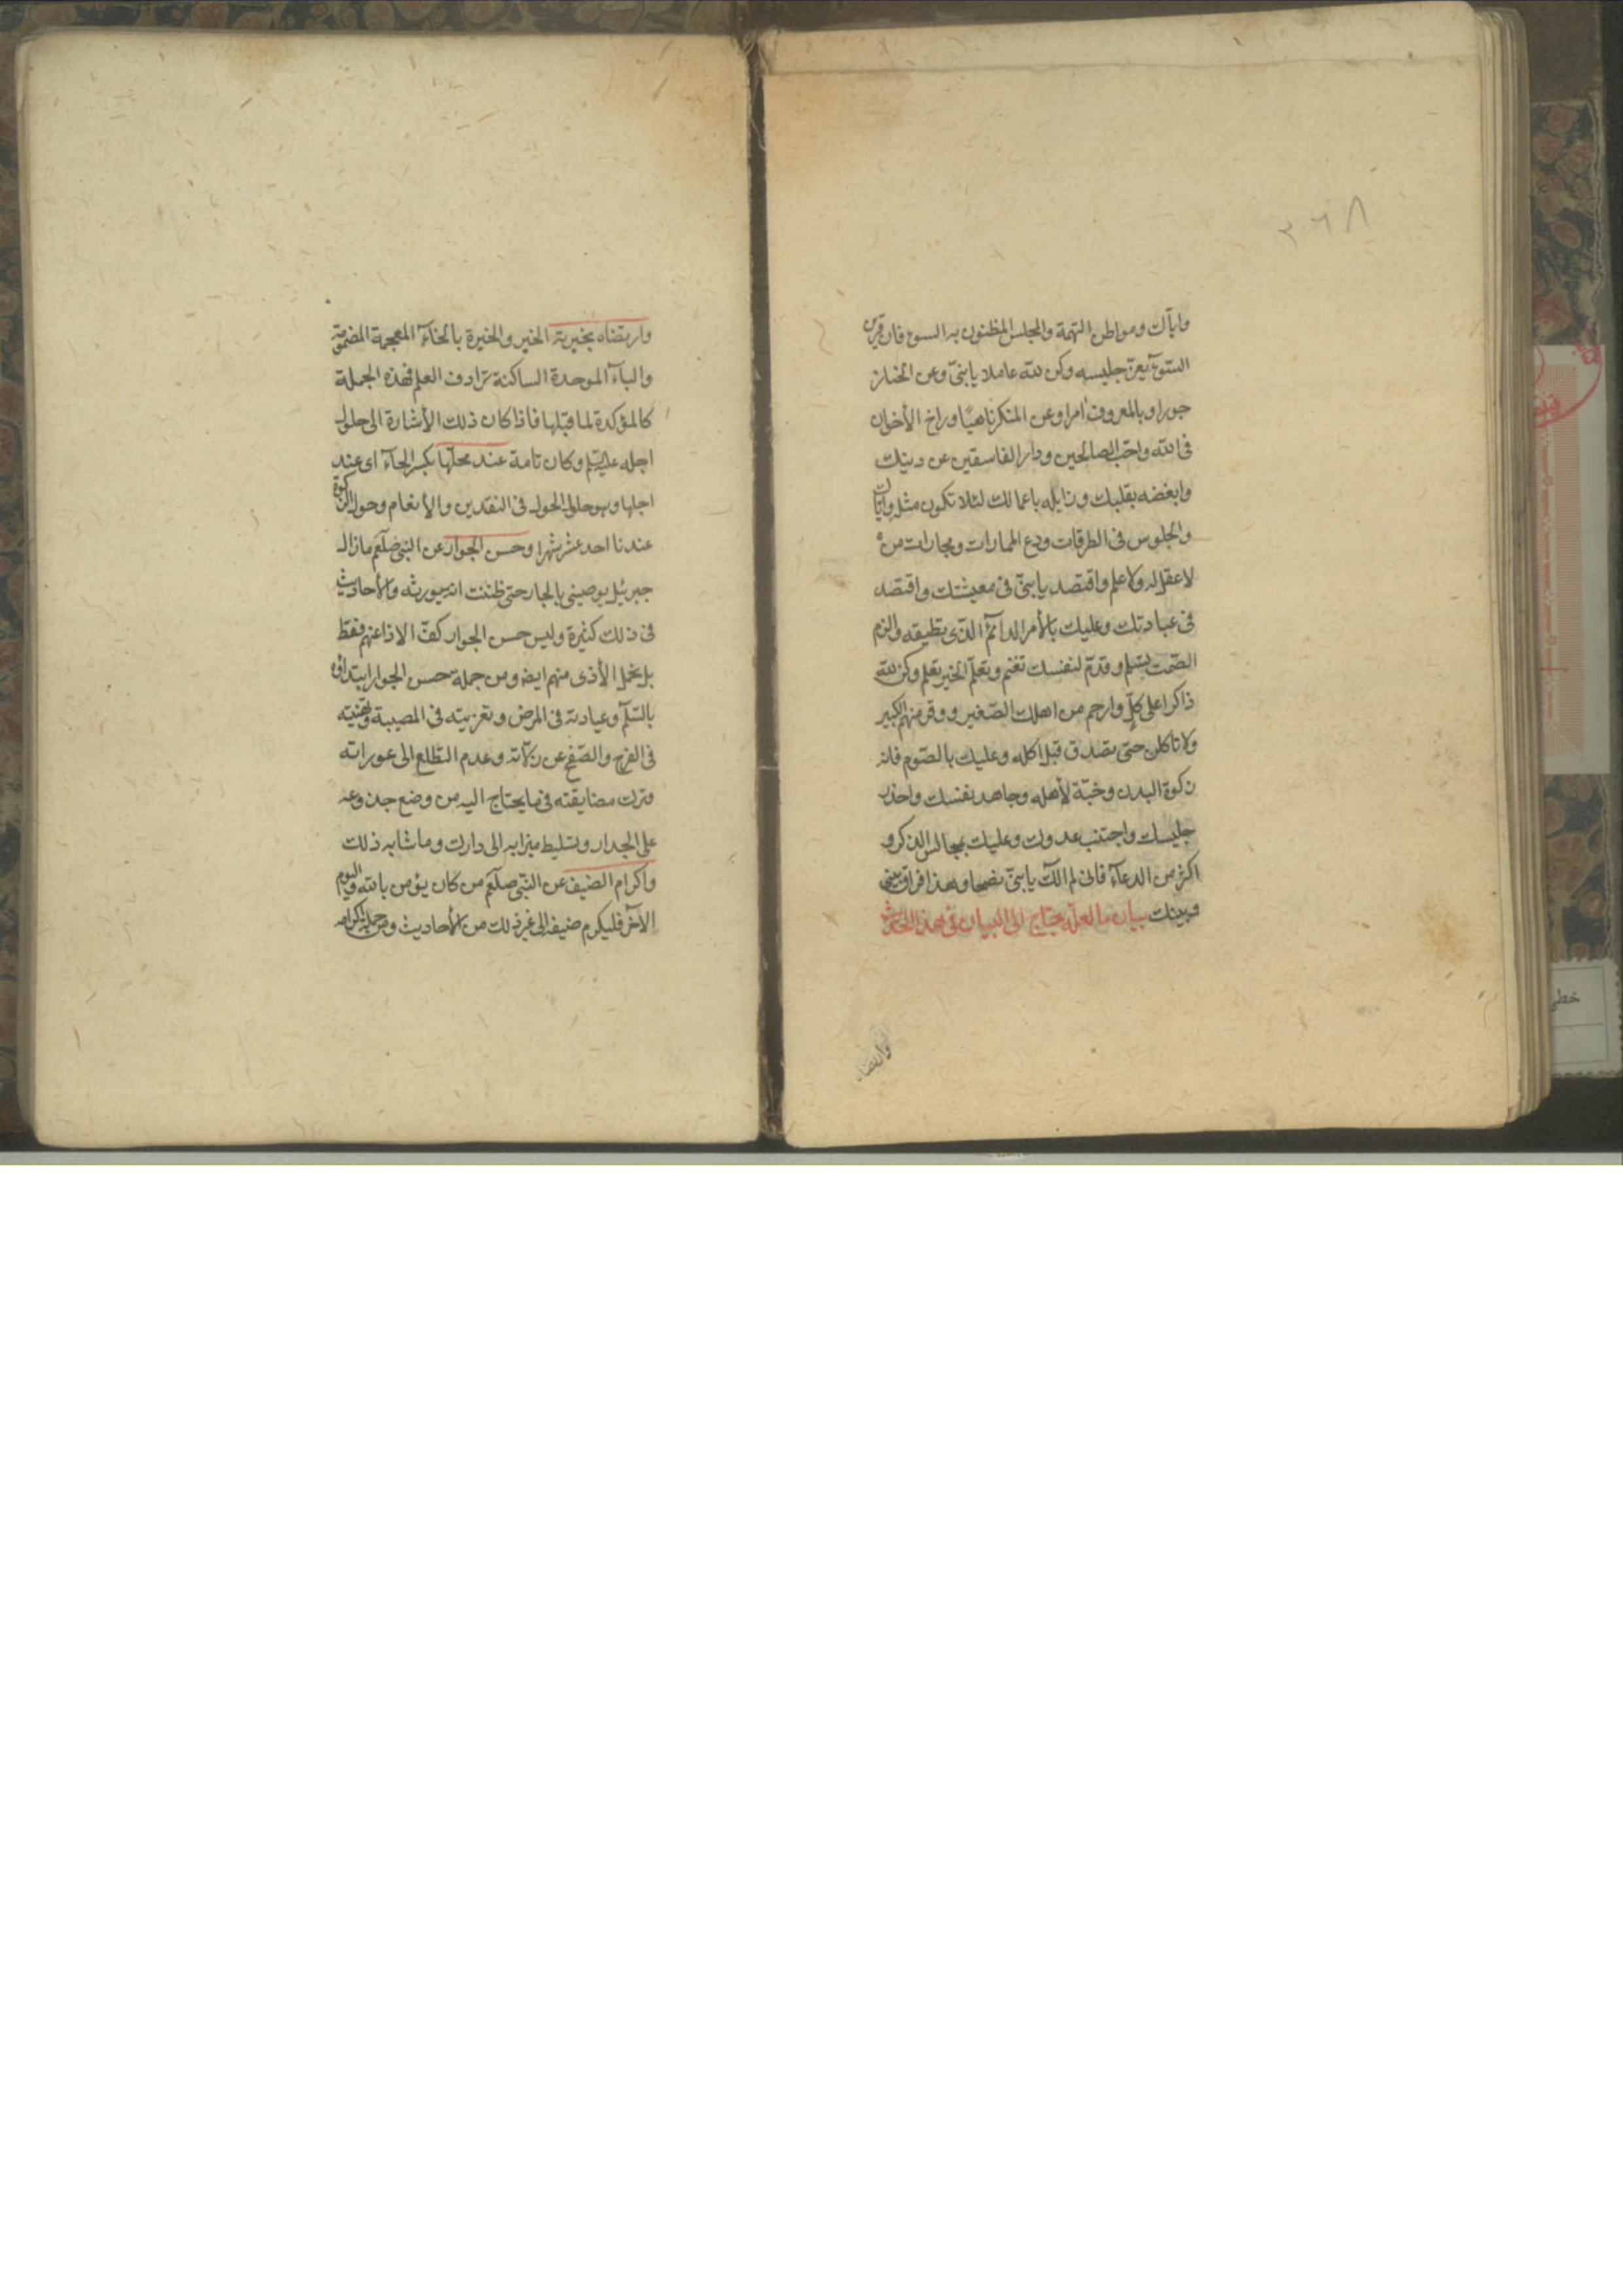 ٢٦٨
واياك ومواطن التهمة والمجلس المظنون به السوء فان قرين
السّوء يغرّ جليسه وكن لله عاملا يا بنىّ وعن الخنا ز
جورا وبالمعروف امرا وعن المنكر ناهيًا وراخ الأخوان
فى الله واحبّ الصالحين ودار الفاسقين عن دينك
وابغضه بقلبك وزايله باعمالك لئلا تكون مثله واياك
والجلوس فى الطرقات ودع الممارات ومجارات من
لا عقل له ولا علم واقتصد يا بنىّ فى معيشتك واقتصد
فى عبادتك وعليك بالأمر الدآئم الّذى تطيقه والزم
الصّمت تسلم وقدّم لنفسك تغنم وتعلّم الخير تعلم وكن لله
ذاكرا على كلّ وارحم من اهلك الصّغير ووقر منهم الكبير
ولا تاكلن حتى تصدق قبل اكله وعليك بالصّوم فانه
زكوة البدن وجنّة لأهله وجاهد نفسك واحذر
جليسك واجتنب عدوك وعليك بمجالس الذكر و
اكثر من الدعآء فانى لم الك يا بنىّ نصحا وهذا فراق بينى
وبينك بيان ما لعلّه يحتاج الى البيان فى هذا الحديث
وارتضاه
وارتضاه بخيرته الخير والخيرة بالخآء المعجمة المضمومة
والبآء الموحدة الساكنة ترادف العلم فهذه الجملة
كالمؤكدة لما قبلها فاذا كان ذلك الأشارة الى حلول
اجله عليه السلم وكان تامة عند محلّها بكسر الحآء اى عند
اجلها وهو حلول الحول فى النقدين والأنعام وحول الزكوة
عندنا احد عشر شهرا وحسن الجوار عن النبى صلعم ما زال
جبرئيل يوصينى بالجار حتى ظننت انه سيورثه والأحاديث
فى ذلك كثيرة وليس حسن الجوار كفّ الاذا عنهم فقط
بل تحمل الأذى منهم ايضا ومن جملة حسن الجوار ابتداؤه
بالسّلم وعيادته فى المرض وتعزيته فى المصيبة وتهنيته
فى الفرح والصّفح عن زلاته وعدم التطلع الى عوراته
وترك مضايقته فيما يحتاج اليه من وضع جذوعه
على الجدار وتسليط ميزابه الى دارك وما شابه ذلك
واكرام الضيف عن النبّى صلعم من كان يؤمن بالله واليوم
الآخر فليكرم ضيفه الى غير ذلك من الأحاديث ومن جملة اكرامه
خطى